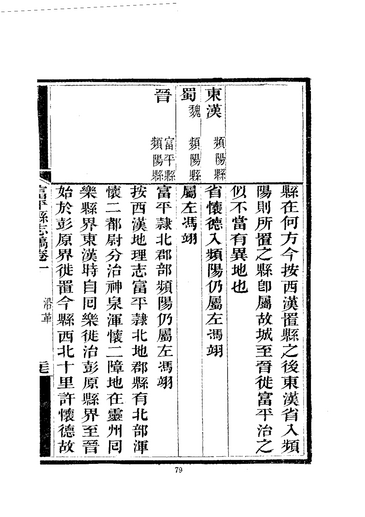 縣在何方今按西漢置縣之後東漢省入頻
陽則所置之縣卽屬故城至晉徙富平治之
似不當有異地也
東漢 頻陽縣
省懷德入頻陽仍屬左馮翊
蜀魏 頻陽縣
屬左馮翊
晉 富平縣 頻陽縣
富平隸北郡部頻陽仍屬左馮翊
按西漢地理志富平隸北地郡縣有北部渾
懷二都尉分治神泉渾懷二障地在靈州囘
樂縣界東漢時自囘樂徙治彭原縣界至晉
始於彭原界徙置今縣西北十里許懷德故
富平縣志稿卷一 沿革
79